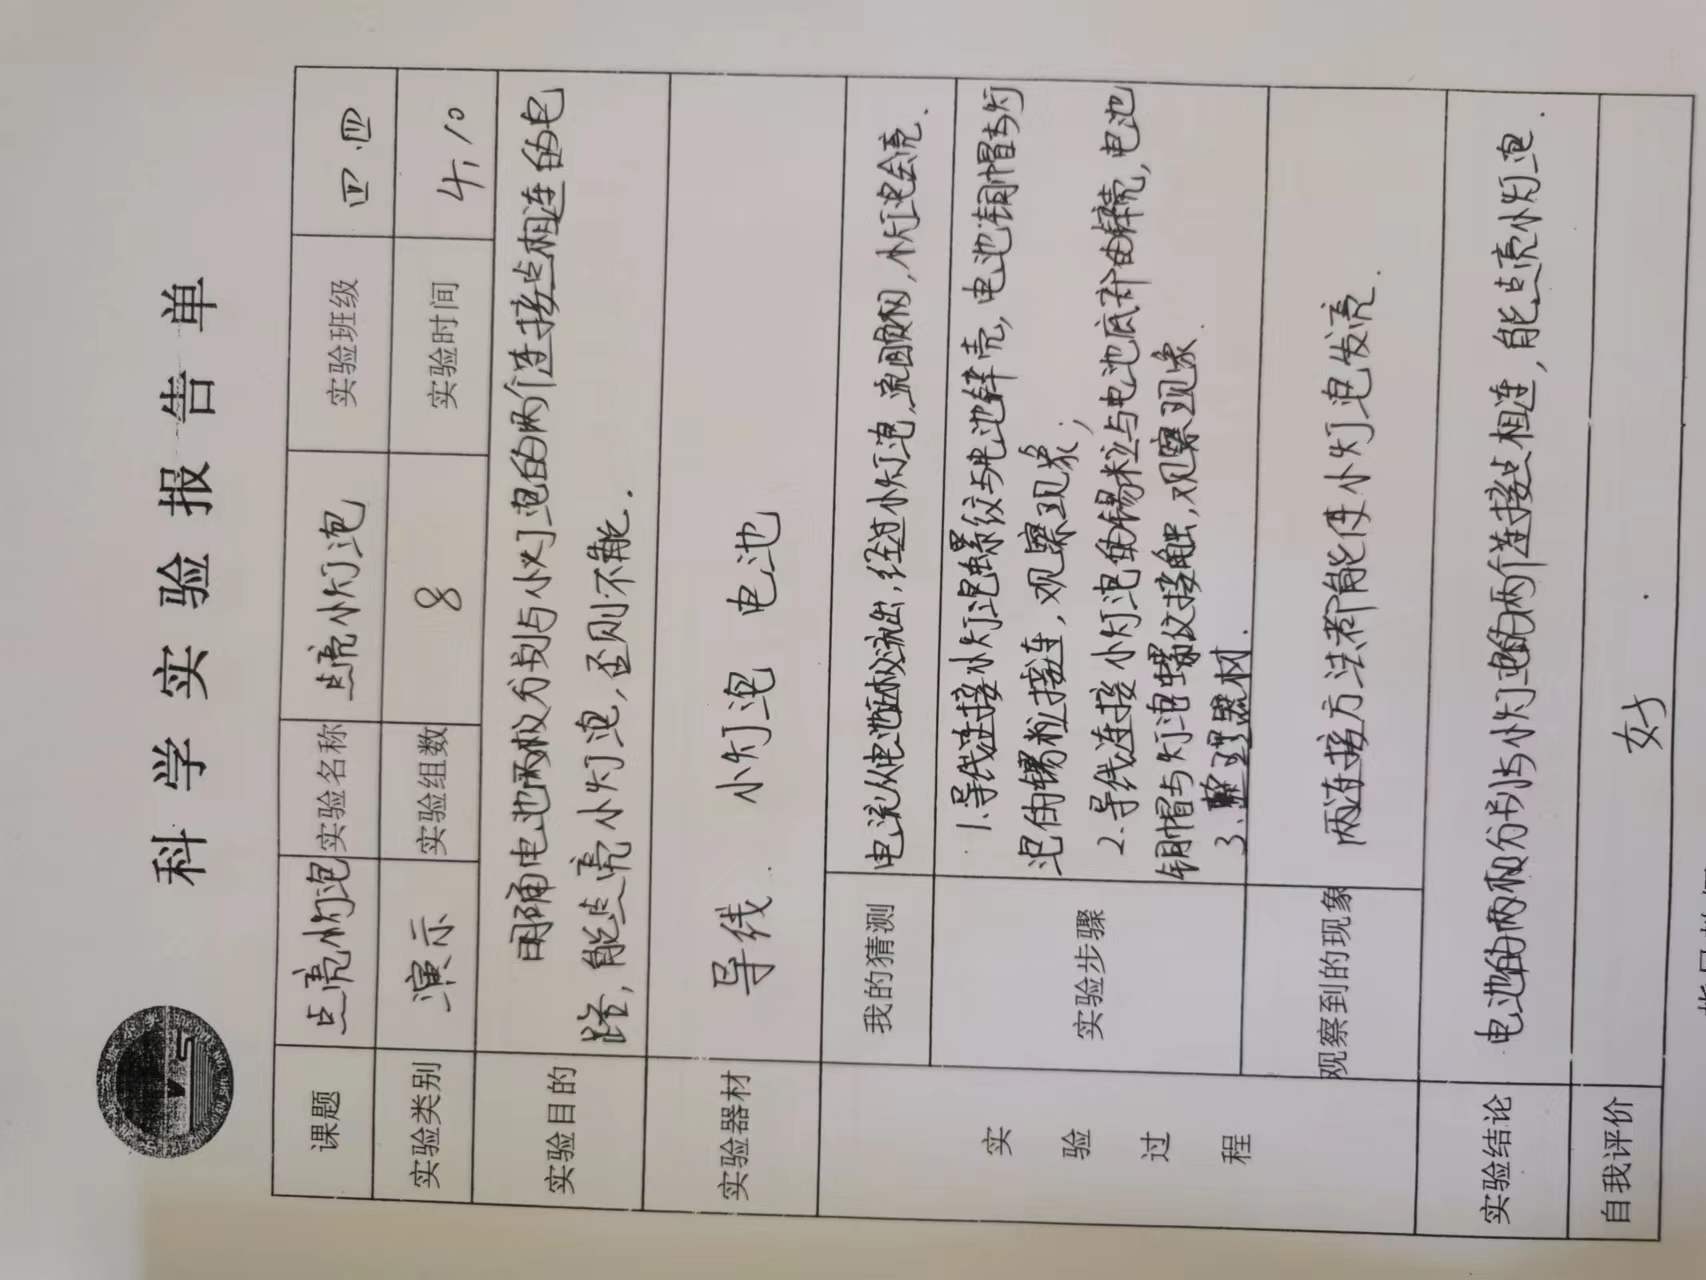 科学实验报告单
课题 点亮小灯泡 实验名称 点亮小灯泡 实验班级 四.四
实验类别 演示 实验组数 8 实验时间 4.10
实验目的 明确电池两极分别与小灯泡的两个连接点相连的电
路,能点亮小灯泡,否则不能.
实验器材 导线 小灯泡 电池
实验过程
我的猜测 电流从电池正极流出,经过小灯泡,流回负极,小灯泡会亮.
实验步骤 1.导线连接小灯泡螺纹与电池锌壳,电池铜帽与灯
泡的锡粒接连,观察现象;
2.导线连接小灯泡的锡粒与电池底部的锌壳,电池
铜帽与灯泡螺纹接触,观察现象.
3.整理器材.
观察到的现象 两连接方法都能使小灯泡发亮.
实验结论 电池的两极分别与小灯泡的两个连接点相连,能点亮小灯泡.
自我评价 好